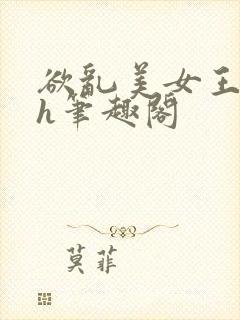 欲乱美女王
h筆趣阁
莫菲